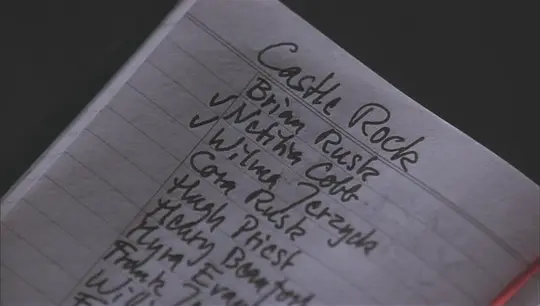 Castle Rock
Brian Rusk
✓ Netitia Cobb
✓ Wilma Jerzyck
Cora Rusk
Hugh Priest
Henry Beaufort
Myra Evan
Frank
Will